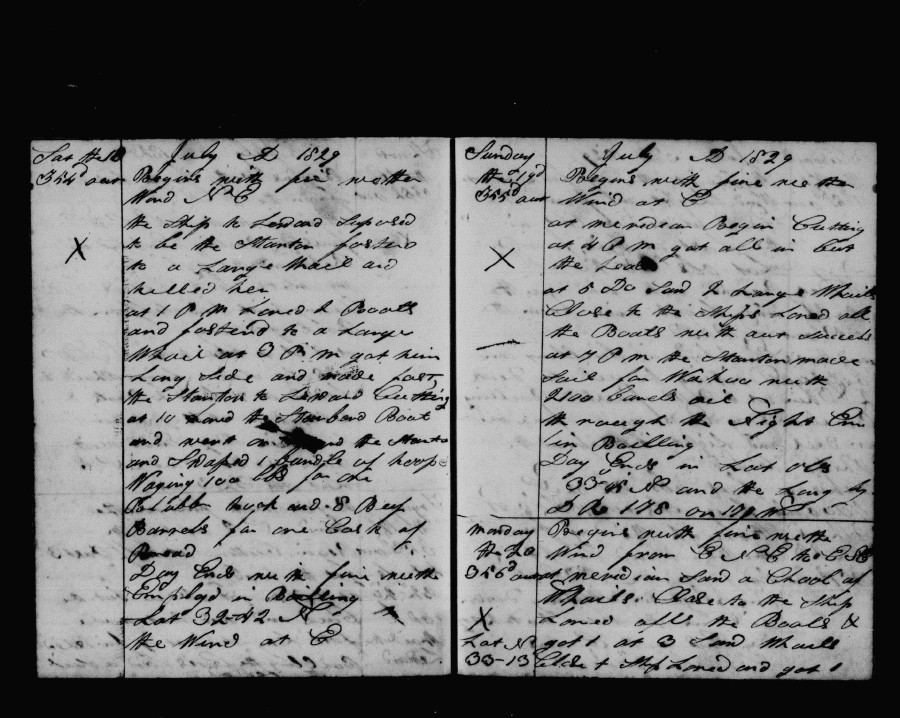 Sat the 18
354d out
July AD 1829
Begins with fin wether
Wind N E
the Ship to Leward Suposed
to be the Stanton fastend
to a Large Whail and
killed her
at 1 P M Loned 2 Boats
and fastend to a Large
Whail at 3 P M got him
Long Side and made fast
the Stanton to Leward Cutting
at 10 Loned the Starbord Boat
and went on the Stanton
and Swaped 1 bundle of hoop
Waying 100 lbs for one
Blabb huck and 8 Beef
Barrels for one Cask of
Bread
Day Ends with fine wether
Employd in Boilling
Lat 32-42 N
the Wind at E
Sunday
the 19d
355d out
July AD 1829
Begins with fine wether
Wind at E
at meredean Begin Cutting
at 4 P M got all in but
the head
at 5 Do Saw 2 Large Whails
Close to the Ship Loned all
the Boats with out success
at 7 P M the Stanton made
Sail for Wahoo with
2100 barels oil
through the Night Em
in Boilling
Day Ends in Lat Obs
33-18 N and the Long by
D R 178
Monday
the 20
356d out
Begins with fine wethe
Wind from E N E to E
at meredian Saw a Chool of
Whails Close to the Ship
Loned all the Boats &
Lat N
33-13
got 1 at 3 Saw Whails
Close to Ship Loned and got 1